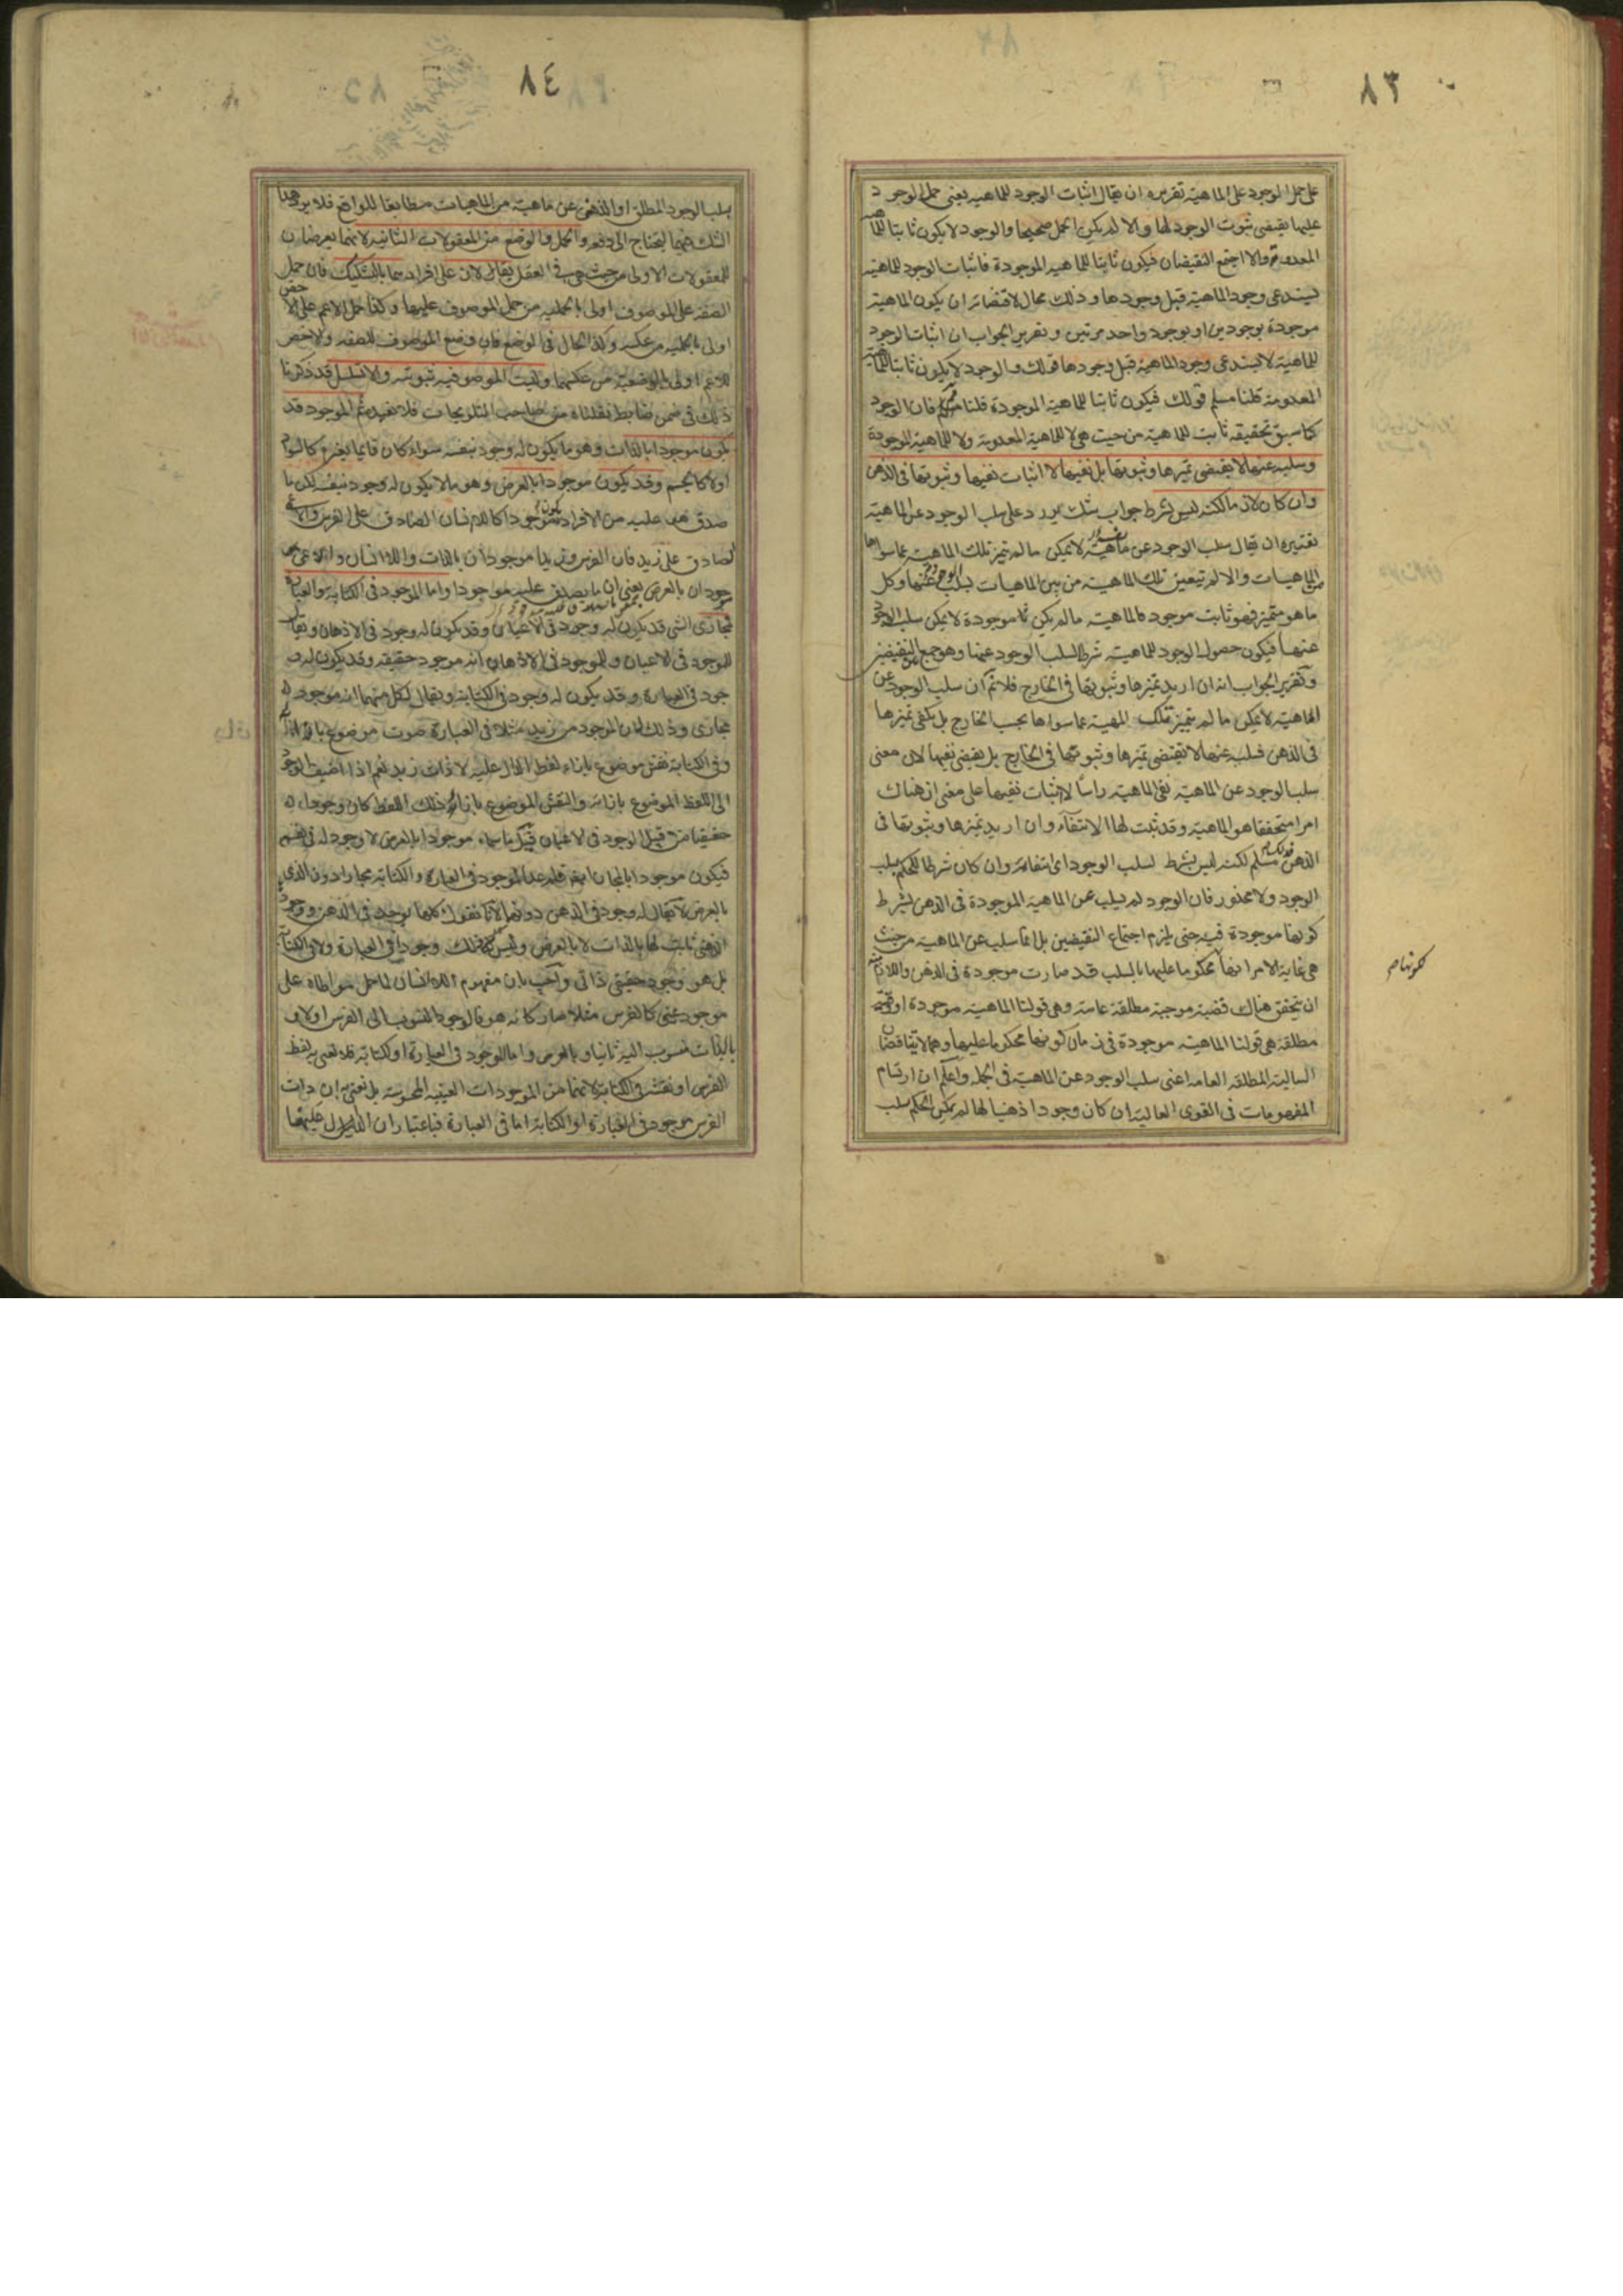 ٨٣
على حمل الوجود على الماهية تقريره ان يقال اثبات الوجود للماهيه يعنى حمل الوجود
عليها يقتضى ثبوت الوجود لها والا لم يكن الحمل صحيحا والوجود لا يكون ثابتا للماهية
المعدومة والا اجتمع النقيضان فيكون ثابتا للماهيه الموجودة فاثبات الوجود للماهيه
يستدعى وجود الماهية قبل وجودها وذلك محال لاقتضائه ان يكون الماهية
موجودة بوجودين او بوجود واحد مرتين وتقرير الجواب ان اثبات الوجود
للماهية لا يستدعى وجود الماهية قبل وجودها قولك والوجود لا يكون ثابتا للماهية
المعدومة قلنا مسلم قولك فيكون ثابتا للماهية الموجودة قلنا فان الوجود
كما سبق تحقيقه ثابت للماهية من حيث هى لا للماهية المعدومة ولا للماهية الموجودة
وسلبه عنها لا يقتضى تميزها وثبوتها بل نفيها لا اثبات نفيها وثبوتها فى الذهن
وان كان لازما لكنه ليس شرطا جواب شك يورد على سلب الوجود عن الماهية
تقريره ان يقال سلب الوجود عن ماهية لا يمكن ما لم تميز تلك الماهية عما سواها
من الماهيات والا لم تيعين تلك الماهية من بين الماهيات بسلب الوجود عنها وكل
ما هو متميز فهو ثابت موجود فالماهية ما لم يكن ثا موجودة لا يمكن سلب الوجود
عنها فيكون حصول الوجود للماهية شرطا لسلب الوجود عنها وهو جمع بين النقيضين
وتقرير الجواب انه ان اريد تميزها وثبوتها فى الخارج فلا نم ان سلب الوجود عن
الماهية لا يمكن ما لم يتميز تلك المهية عما سواها بحسب الخارج بل يكفى تميزها
فى الذهن فسلبه عنها لا يقتضى تميزها وثبوتها فى الخارج بل يقتضى نفيها لان معنى
سلب الوجود عن الماهية نفى الماهية راسا لا اثبات نفيها على معنى ان هناك
امرا متحققا هو الماهية وقد ثبت لها الانتفاء وان اريد تميزها وثبوتها فى
الذهن مسلم لكنه ليس بشرط لسلب الوجود اى انتفائه وان كان شرطا للحكم بسلب
الوجود ولا محذور فان الوجود لم يسلب عن الماهية الموجودة فى الذهن بشرط
كونها موجودة فيه حتى يلزم اجتماع النقيضين بل انما سلب عن الماهية من حيث
هى غاية الامر انها محكوما عليها بالسلب قد صارت موجودة فى الذهن واللازم منه
ان يتحقق هناك قضية موجبة مطلقة عامة وهى قولنا الماهية موجودة او وقتية
مطلقة هى قولنا الماهية موجودة فى زمان كونها محكوما عليها وهما لا يتناقضان
السالبة المطلقه العامه اعنى سلب الوجود عن الماهية فى الجملة واعلم ان ارتسام
المفهومات فى القوى العالية ان كان وجودا ذهنيا لها لم يكن الحكم بسلب
كونها صح
٨٤
سلب الوجود المطلق او الذهنى عن ماهية من الماهيات مطابقا للواقع فلا يرد هذا
الشك فيها ليحتاج الى دفعه والحمل والوضع من المعقولات الثانية لانهما يعرضان
للمعقولات الاولى من حيث هى فى العقل يقالان على افرادهما بالتشكيك فان حمل
الصفة على الموصوف اولى بالحملية من حمل الموصوف عليها وكذا حمل الاعم على الاخص
اولى بالحملية من عكسه وكذا الحال فى الوضع فان وضع الموصوف للصفه والاخص
للاعم اولى بالوضعية من عكسهما وليست الموصوفية ثبوتيه والا تسلسل قد ذكرنا
ذلك فى ضمن ضابط نقلناه من صاحب التلويحات فلا نعيده ثم الموجود قد
يكون موجودا بالذات وهو ما يكون له وجود نفسه سواء كان قايما بغيره كالسواد
اولا كالجسم وقد يكون موجودا بالعرض وهو ما لا يكون له وجود نفسه لكن ما
صدق هو عليه من الافراد يكون موجودا كاللاانسان الصادق على الفرس والاعمى
الصادق على زيد فان الفرس وزيدا موجودان بالذات واللاانسان والاعمى
موجودان بالعرض يعنى ان ما يصدق عليه موجودا واما الموجود فى الكتابة والعبارة
فمجازى الشى قد يكون له وجود فى الاعيان وقد يكون له وجود فى الاذهان ويقال
للموجود فى الاعيان وللموجود فى الاذهان انه موجود حقيقة وقد يكون له و
جود فى العبارة وقد يكون له وجود فى الكتابة ويقال لكل منهما انه موجود
مجازى وذلك لان الموجود من زيد مثلا فى العبارة صوت موضوع بازائه
وفى الكتابة نقش موضوع بازاء لفظ الدال عليه لا ذات زيد نعم اذا اضيف الوجود
الى اللفظ الموضوع بازائه والنقش الموضوع بازاء ذلك اللفظ كان وجوداله
حقيقيا من قبيل الوجود فى الاعيان موجودا بالعرض لا وجود له فى نفسه
فيكون موجودا بالمجاز ايضا فلم عد الموجود فى العبارة والكتابة مجازا دون الذى
بالعرض لا يقال له وجود فى الذهن دونهما لانا نقول كلها توجد فى الذهن ووجود
الذهنى ثابت لها بالذات لا بالعرض وليس كذلك وجودها فى العبارة ولا فى الكتابة
بل هو وجود حقيقى ذاتى واجيب بان مفهوم اللاانسان لما حمل مواطاة على
موجود عينى كالفرس مثلا صار كانه هو فالوجود المنسوب الى الفرس اولا و
بالذات منسوب اليه ثانيا وبالعرض واما الموجود فى العبارة او الكتابة فلا نعنى به لفظ
الفرس او نقشه فى الكتابة لانهما من الموجودات العينيه المحسوسة بل نعنى به ان ذات
الفرس موجود فى العبارة او الكتابة اما فى العبارة فباعتبار ان الدال عليها